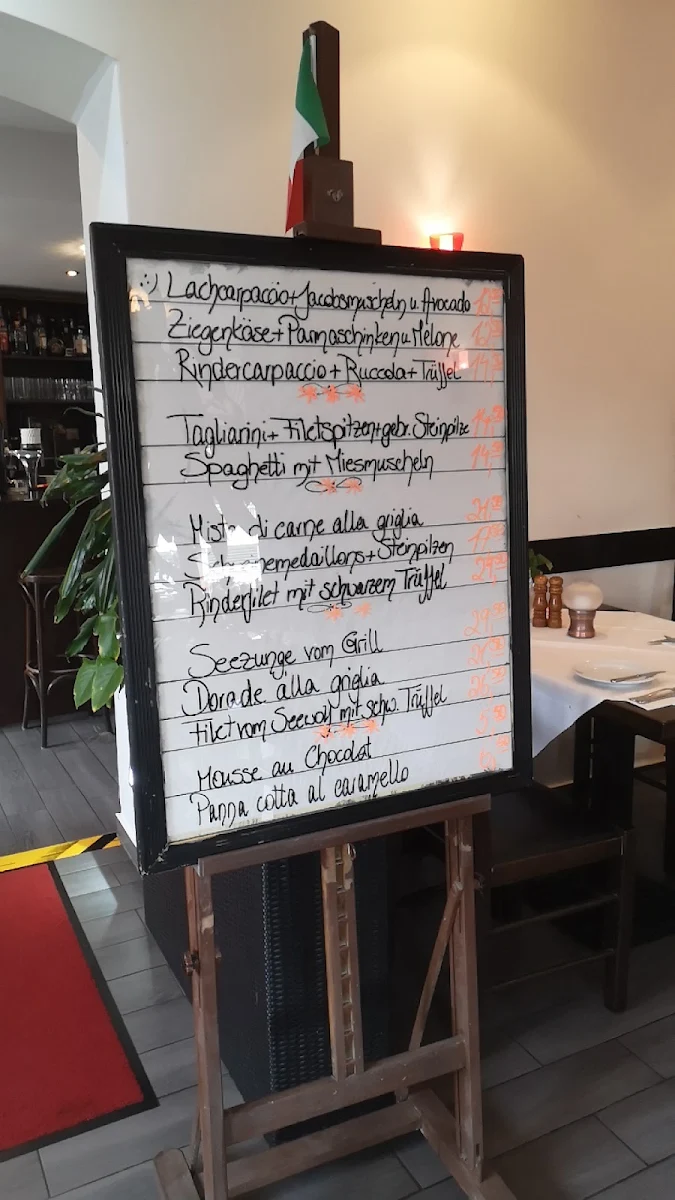 :) Lachcarpaccio+Jacobsmuscheln u. Avocado
Ziegenkäse+Parmaschinken u Melone
Rindercarpaccio+Ruccola+Trüffel
Tagliarini+Filetspitzen+gebr. Steinpilze 14,50
Spaghetti mit Miesmuscheln 14,50
Misto di carne alla griglia
Schweinemedaillons+Steinpilzen
Rinderfilet mit schwarzem Trüffel
Seezunge vom Grill
Dorade alla griglia
Filet vom Seewolf mit schw. Trüffel
Mousse au Chocolat
Panna cotta al caramello